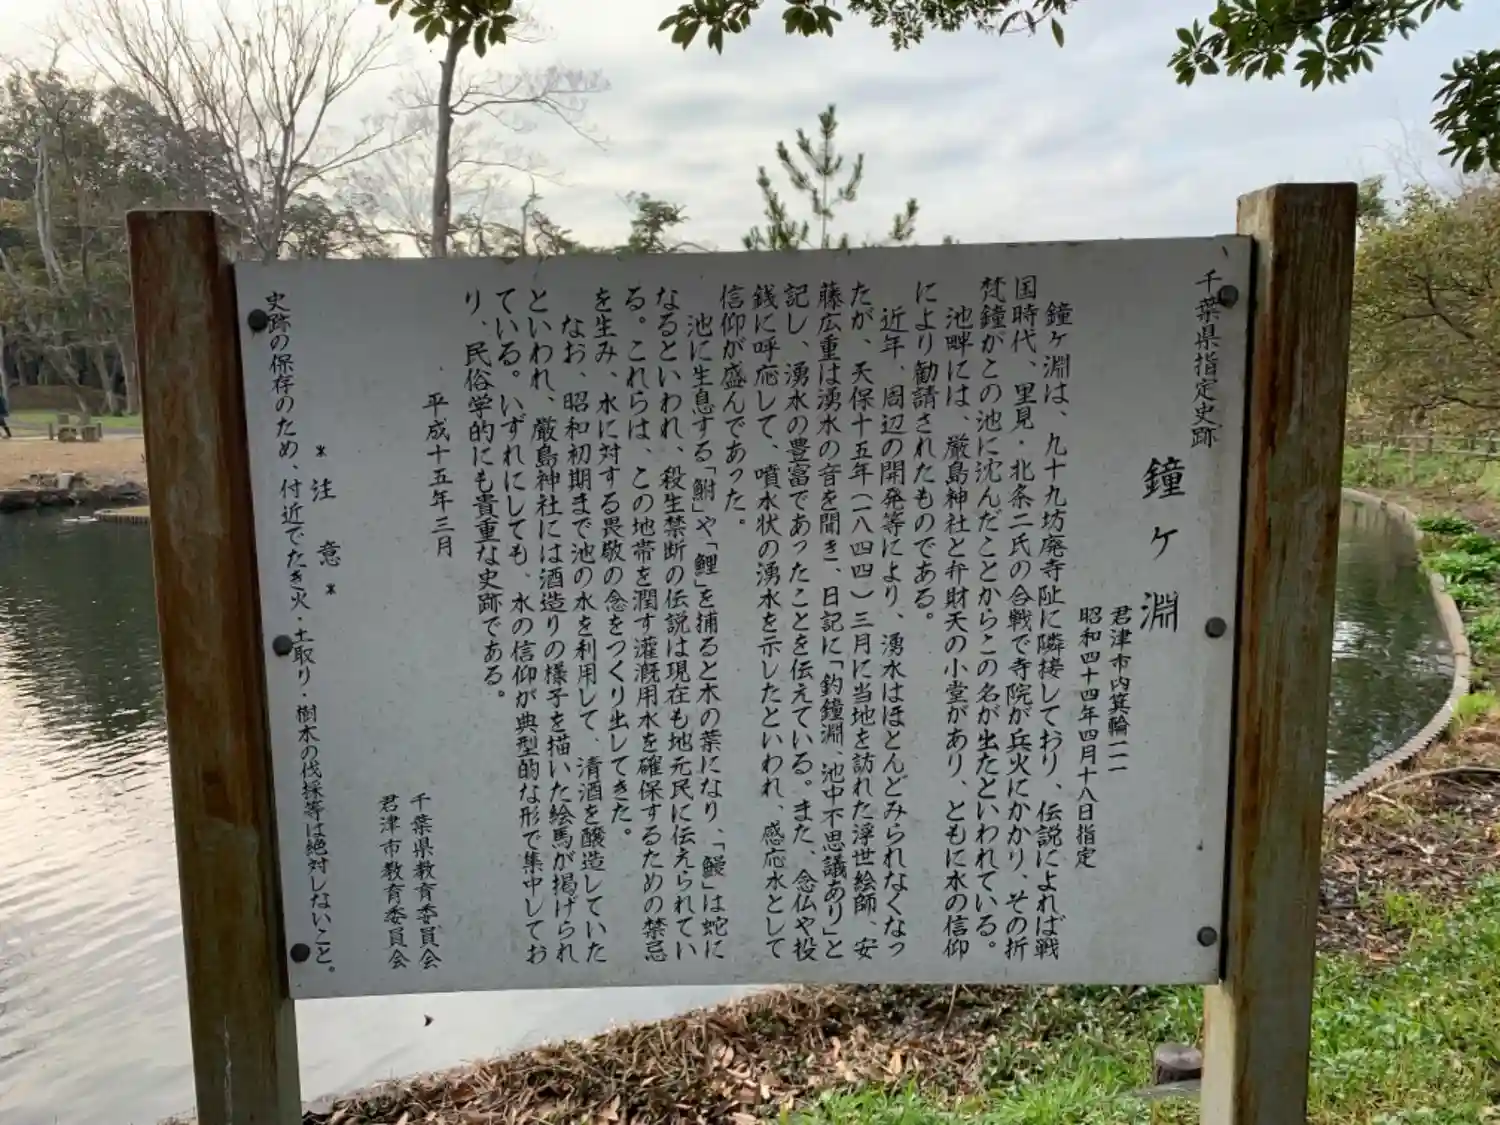 千葉県指定史跡
鐘ヶ淵
君津市内箕輪一一
昭和四十四年四月十八日指定
鐘ヶ淵は、九十九坊廃寺阯に隣接しており、伝説によれば戦
国時代、里見・北条二氏の合戦で寺院が兵火にかかり、その折
梵鐘がこの池に沈んだことからこの名が出たといわれている。
池畔には、厳島神社と弁財天の小堂があり、ともに水の信仰
により勧請されたものである。
近年、周辺の開発等により、湧水はほとんどみられなくなっ
たが、天保十五年(一八四四)三月に当地を訪れた浮世絵師、安
藤広重は湧水の音を聞き、日記に「釣鐘淵、池中不思議あり」と
記し、湧水の豊富であったことを伝えている。また、念仏や投
銭に呼応して、噴水状の湧水を示したといわれ、感応水として
信仰が盛んであった。
池に生息する「鮒」や「鯉」を捕ると木の葉になり、「鰻」は蛇に
なるといわれ、殺生禁断の伝説は現在も地元民に伝えられてい
る。これらは、この地帯を潤す灌漑用水を確保するための禁忌
を生み、水に対する畏敬の念をつくり出してきた。
なお、昭和初期まで池の水を利用して、清酒を醸造していた
といわれ、厳島神社には酒造りの様子を描いた絵馬が掲げられ
ている。いずれにしても、水の信仰が典型的な形で集中してお
り、民俗学的にも貴重な史跡である。
平成十五年三月
千葉県教育委員会
君津市教育委員会
*注意*
史跡の保存のため、付近でたき火・土取り・樹木の伐採等は絶対しないこと。